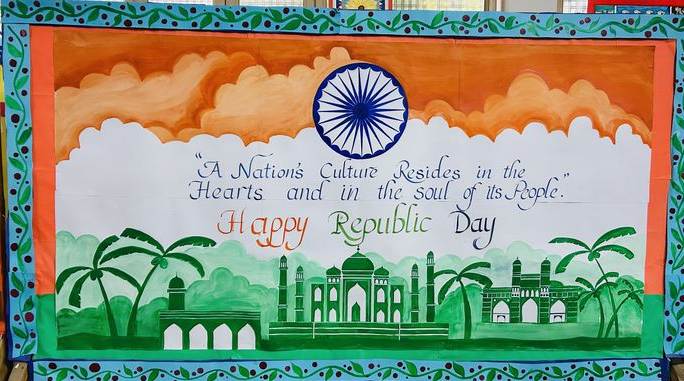 "A Nation's Culture Resides in the
Hearts and in the soul of its People."
Happy Republic Day